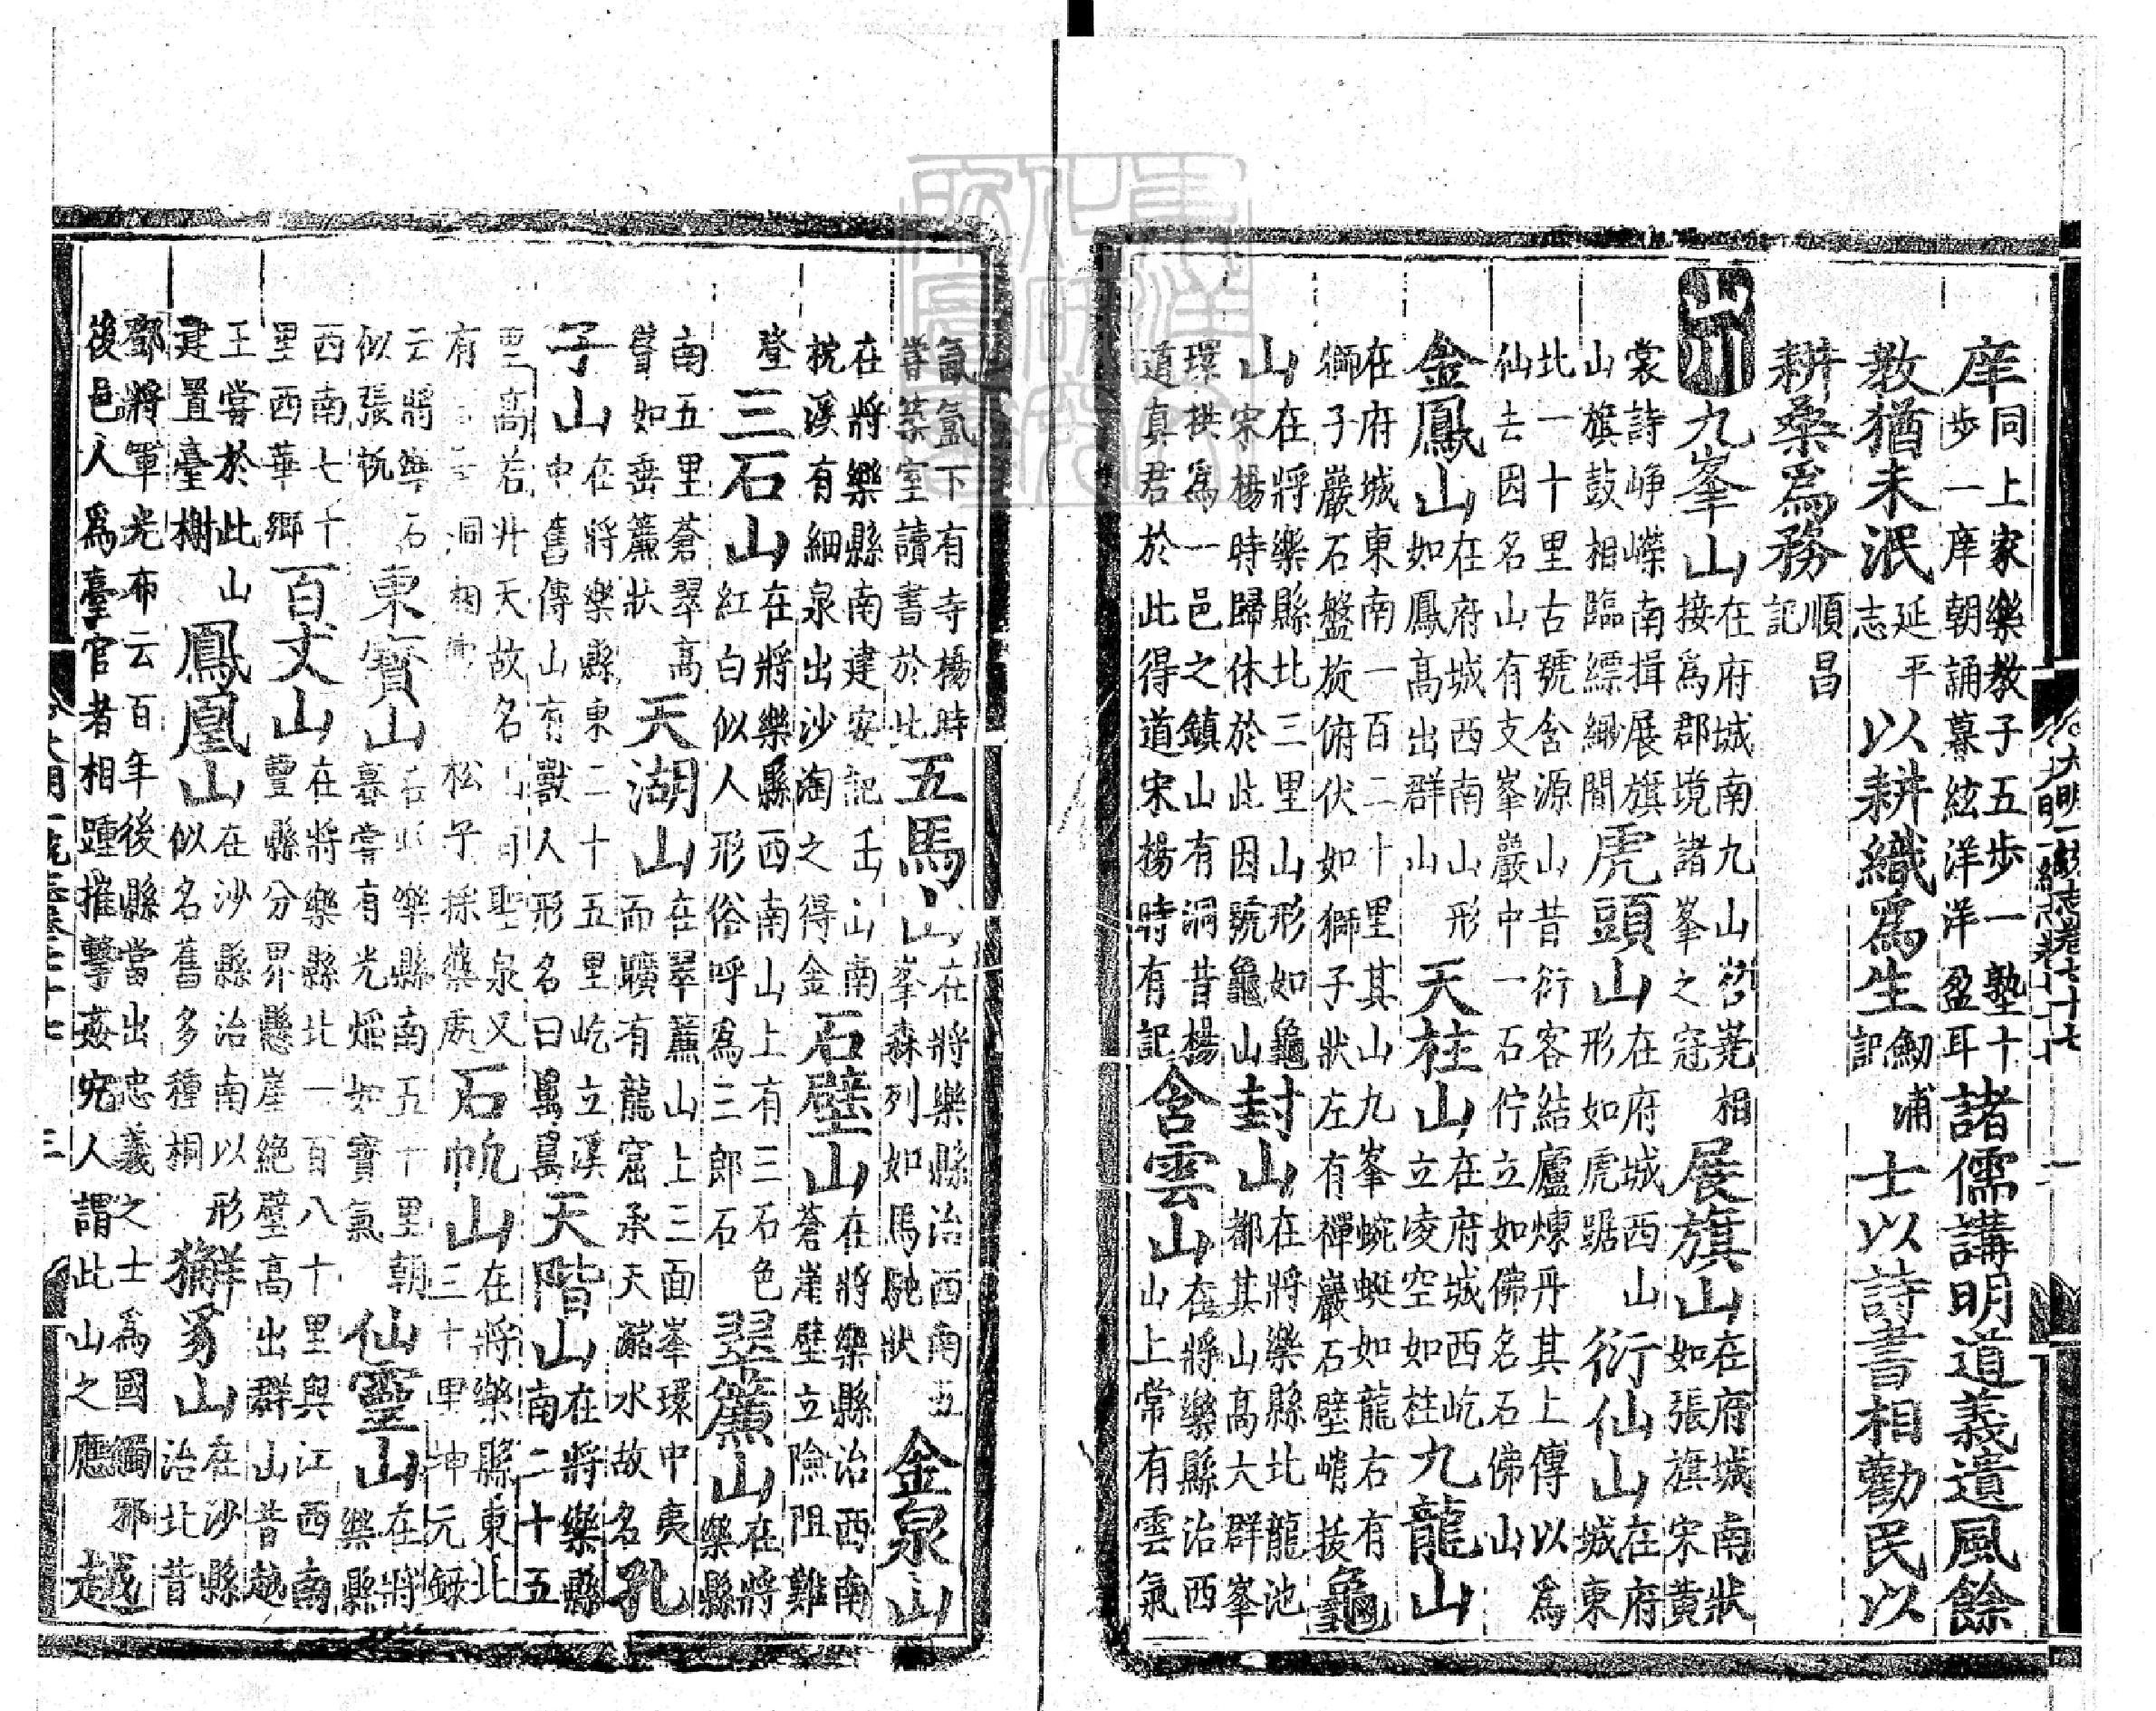 庠同上家樂教子五步一塾十步一庠朝誦暮絃洋洋盈耳諸儒講明道義遺風餘
教猶未泯延平志以耕織爲生劒浦記士以詩書相勸民以
耕桑爲務順昌記
山川九峯山在府城南九山岧嶤相接爲郡境諸峯之冠展旗山在府城南狀如張旗宋黃
裳詩崢嶸南揖展旗山旗鼓相臨縹緲間虎頭山在府城西山形如虎踞衍仙山在府城東
北一十里古號含源山昔衍客結廬煉丹其上傳以爲仙去因名山有支峯巖中一石佇立如佛名石佛山
金鳳山在府城西南山形如鳳高出群山天柱山在府城西屹立凌空如柱九龍山
在府城東南一百二十里其山九峯蜿蜒如龍右有獅子巖石盤旋俯伏如獅子狀左有禪巖石壁峭拔龜
山在將樂縣北三里山形如龜宋楊時歸休於此因號龜山封山在將樂縣北龍池都其山高大群峯
環拱爲一邑之鎮山有洞昔楊道真君於此得道宋楊時有記含雲山在將樂縣治西山上常有雲氣
氤氳下有寺楊時嘗築室讀書於此五馬山在將樂縣治西南五峯森列如馬馳狀金泉山
在將樂縣南建安記山南溪有細泉出沙淘之得金石壁山在將樂縣治西南蒼崖壁立險阻難
登三石山在將樂縣西南山上有三石色紅白似人形俗呼爲三郎石翠簾山在將樂縣
南五里蒼翠高聳如垂簾狀天湖山在翠簾山上三面峯環中夷而曠有龍窟承天瀦水故名孔
子山在將樂縣東二十五里屹立溪中舊傳山有獸人形名曰天階山在將樂縣南二十五
里高若升天故名聖泉又有洞相傳松子採藥處石帆山在將樂縣東北三十里坤元錄
云將樂石似張帆東寶山在將樂縣南五十里朝暮嘗有光熖如寶氣仙靈山在將樂縣
西南七十里西華鄉百丈山在將樂縣北一百八十里與江西南豐縣分界懸崖絕壁高出群山昔越
王嘗於此山建置臺榭鳳凰山在沙縣治南以形似名舊多種桐獬豸山在沙縣治北昔
鄧將軍光布云百年後縣當出忠義之士爲國觸邪後邑人爲臺官者相踵摧擊姦宄人謂此山之應越